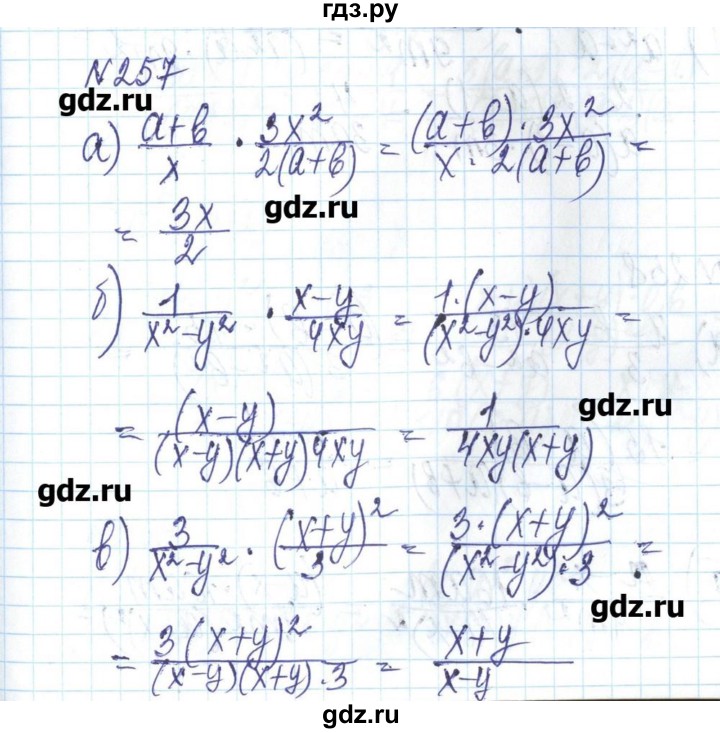 гдз.ру
№257
gdz.ru
а) (a+b)/x · 3x²/(2(a+b)) = ((a+b)·3x²)/(x·2(a+b)) =
gdz.ru
= 3x/2
б) 1/(x²-y²) · (x-y)/(4xy) = (1·(x-y))/((x²-y²)·4xy) =
gdz.ru
= (x-y)/((x-y)(x+y)4xy) = 1/(4xy(x+y))
gdz.ru
в) 3/(x²-y²) · (x+y)²/3 = (3·(x+y)²)/((x²-y²)·3) =
gdz.ru
= (3(x+y)²)/((x-y)(x+y)·3) = (x+y)/(x-y)
gdz.ru